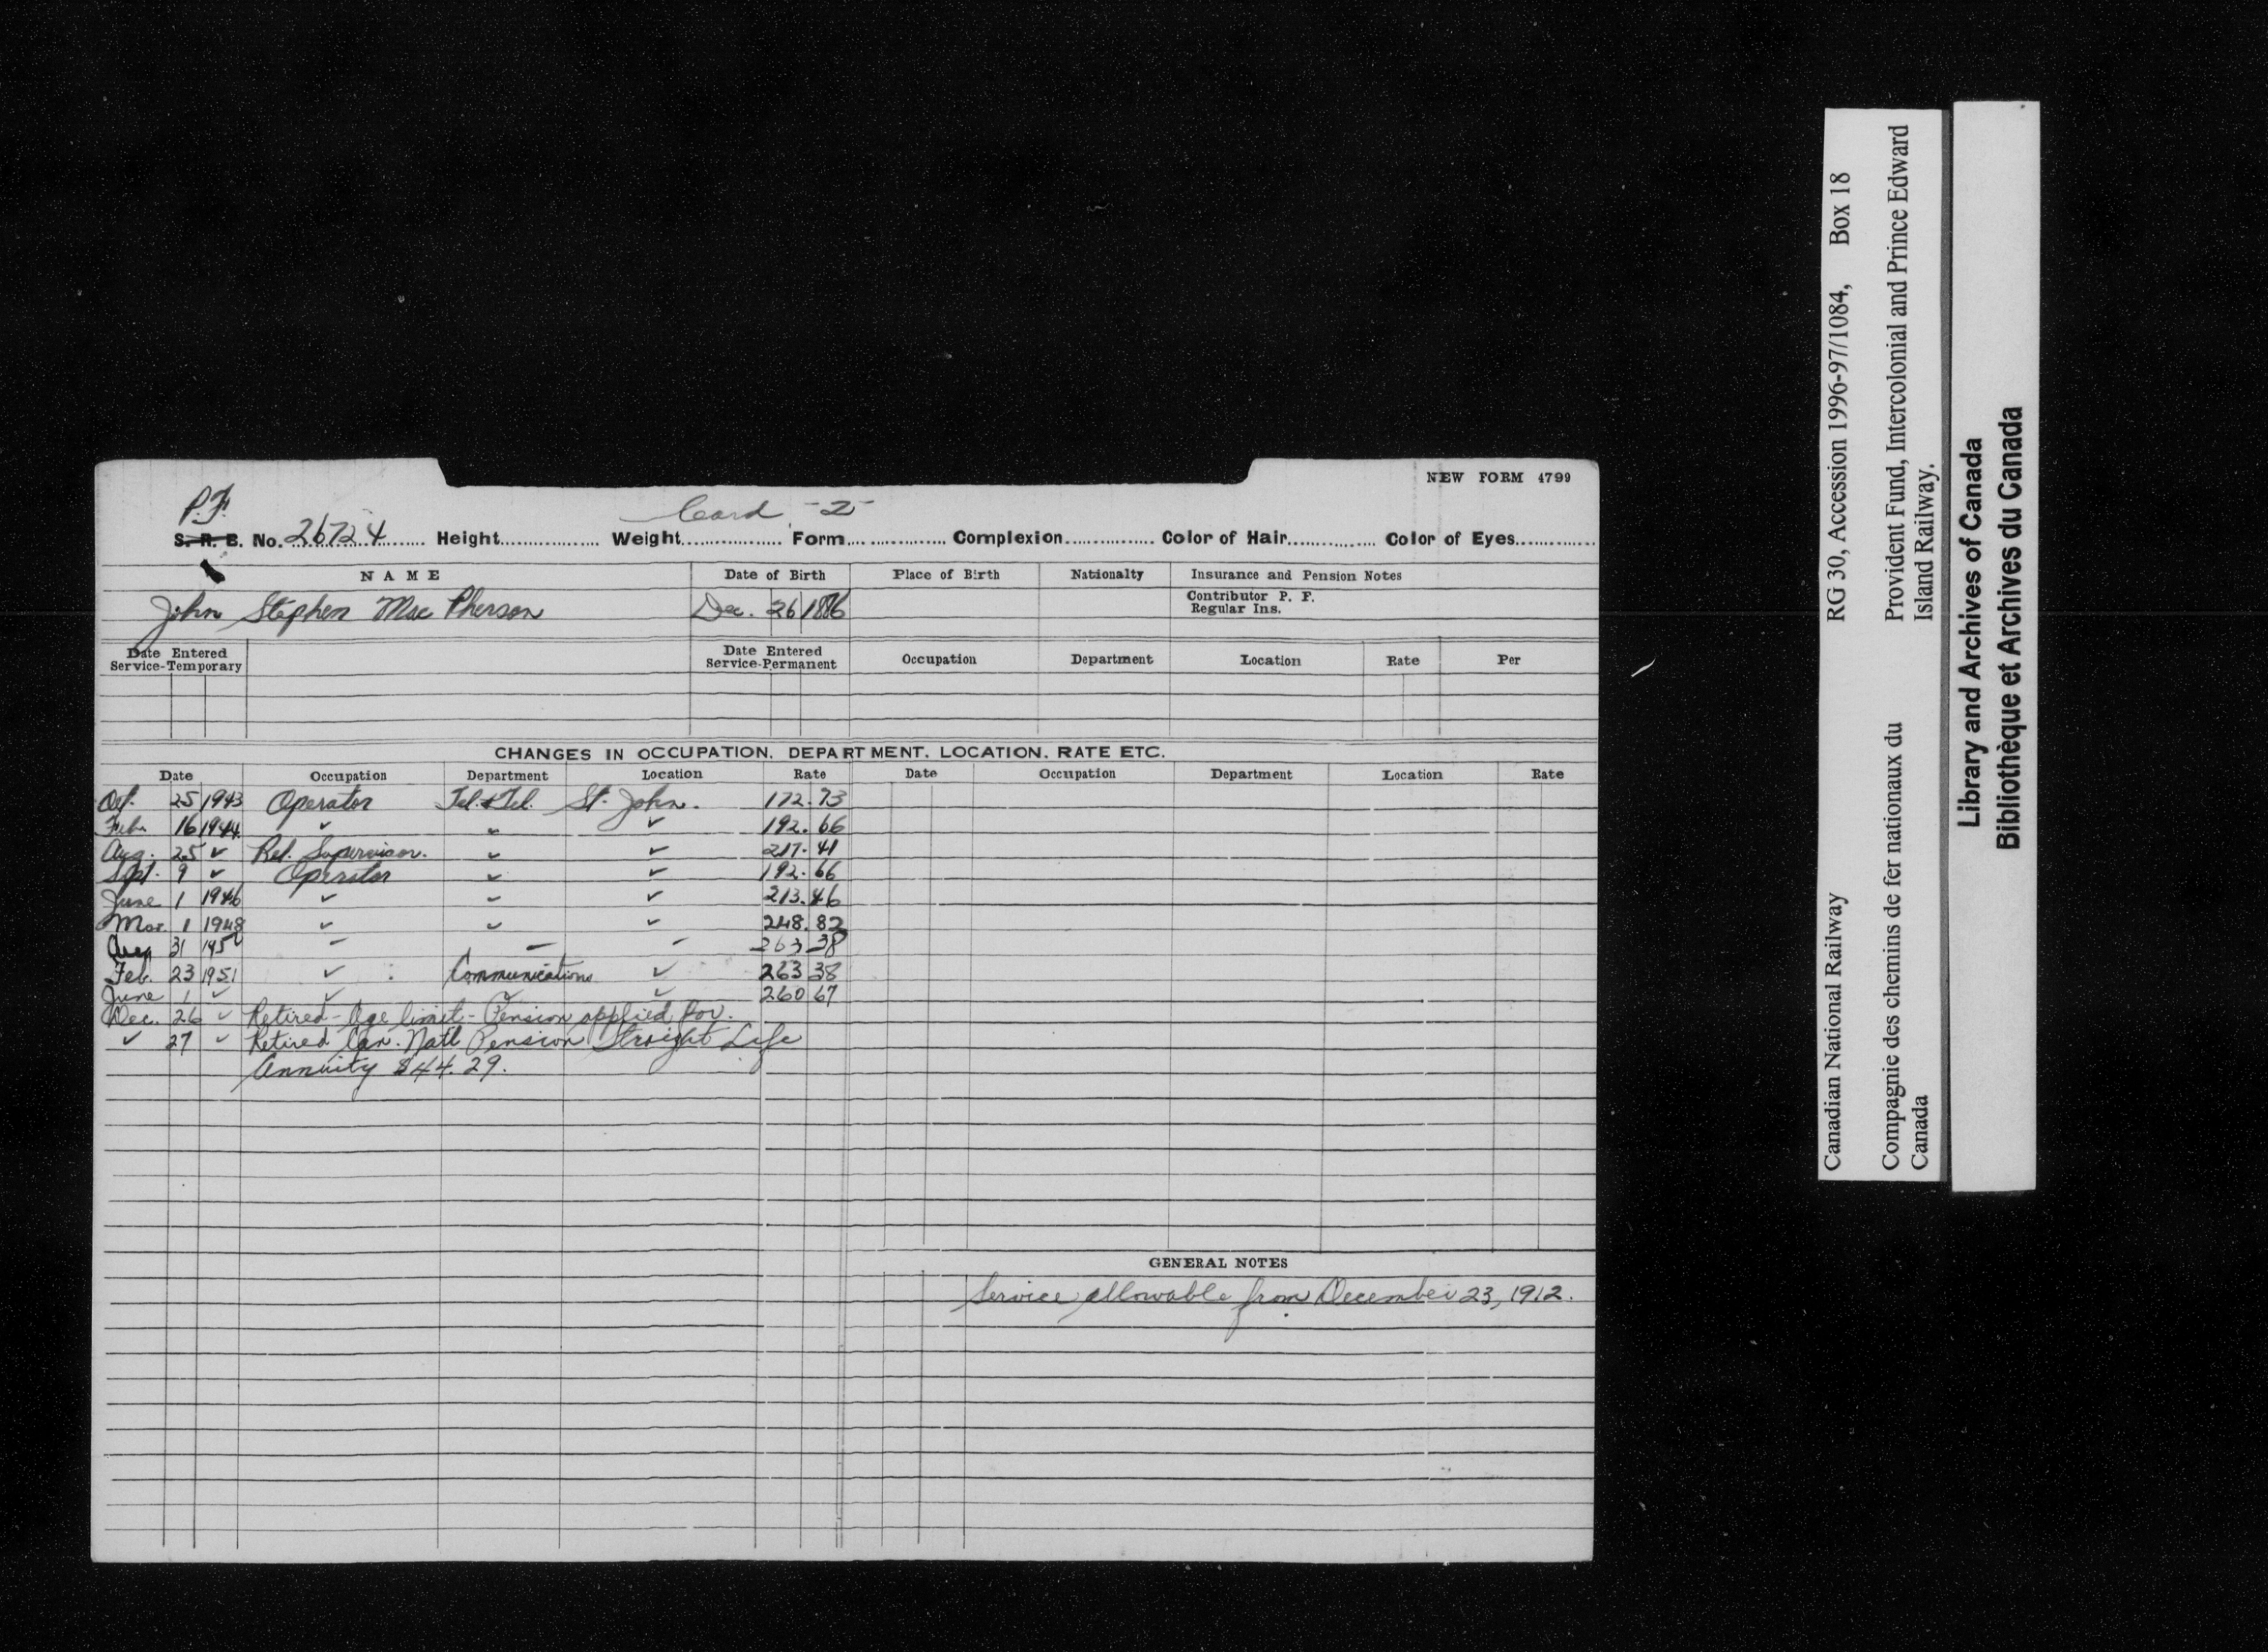 NEW FORM 4799
P.F. Card -2-
S. R. B. No. 26724 Height Weight Form Complexion Color of Hair Color of Eyes
NAME Date of Birth Place of Birth Nationalty Insurance and Pension Notes
John Stephen MacPherson Dec. 26 1886 Contributor P. F.
Regular Ins.
Date Entered Service-Temporary Date Entered Service-Permanent Occupation Department Location Rate Per
CHANGES IN OCCUPATION, DEPARTMENT, LOCATION, RATE ETC.
Date Occupation Department Location Rate Date Occupation Department Location Rate
25 1943 Operator Tel. & Tel. St. John. 172.73
Feb. 16 1944 ✓ ✓ ✓ 192.66
Aug. 25 ✓ Rel. Supervisor. ✓ ✓ 217.41
Sept. 9 ✓ Operator ✓ ✓ 192.66
June 1 1946 ✓ ✓ ✓ 213.46
Mar. 1 1948 ✓ ✓ ✓ 248.82
31 263 38
Feb. 23 1951 ✓ Communications ✓ 263 38
June 1 ✓ ✓ ✓ ✓ 260 67
Dec. 26 ✓ Retired - Age limit - Pension applied for.
✓ 27 ✓ Retired Can. Nat'l Pension Straight Life
Annuity $44.29.
GENERAL NOTES
Service allowable from December 23, 1912.
Canadian National Railway RG 30, Accession 1996-97/1084, Box 18
Compagnie des chemins de fer nationaux du Provident Fund, Intercolonial and Prince Edward
Canada Island Railway.
Library and Archives of Canada
Bibliothèque et Archives du Canada